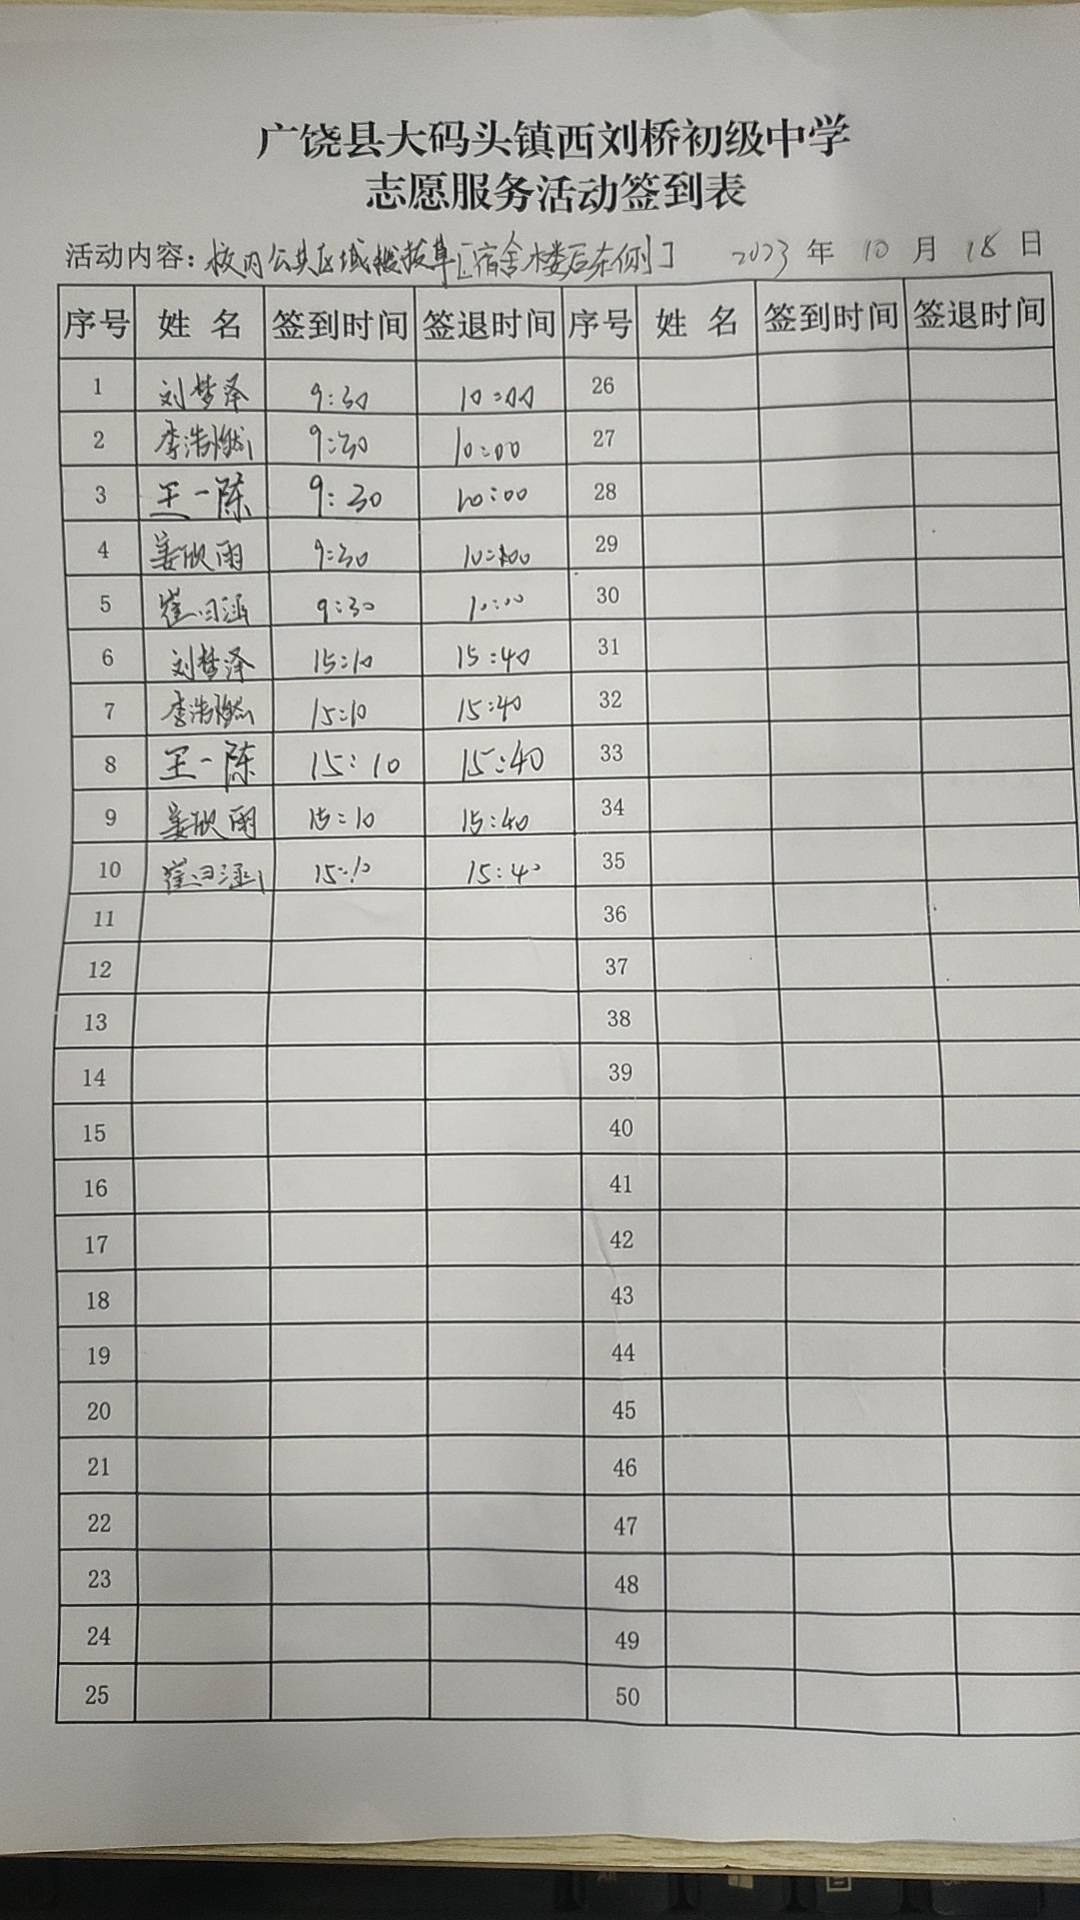 广饶县大码头镇西刘桥初级中学
志愿服务活动签到表
活动内容：校内公共区域拔草[宿舍楼后东侧] 2023 年 10 月 18 日
序号 姓名 签到时间 签退时间 序号 姓名 签到时间 签退时间
1 刘梦泽 9:30 10:00 26
2 李浩然 9:30 10:00 27
3 王一陈 9:30 10:00 28
4 姜欣雨 9:30 10:00 29
5 崔涵 9:30 10:00 30
6 刘梦泽 15:10 15:40 31
7 李浩然 15:10 15:40 32
8 王一陈 15:10 15:40 33
9 姜欣雨 15:10 15:40 34
10 崔涵 15:10 15:40 35
11 36
12 37
13 38
14 39
15 40
16 41
17 42
18 43
19 44
20 45
21 46
22 47
23 48
24 49
25 50